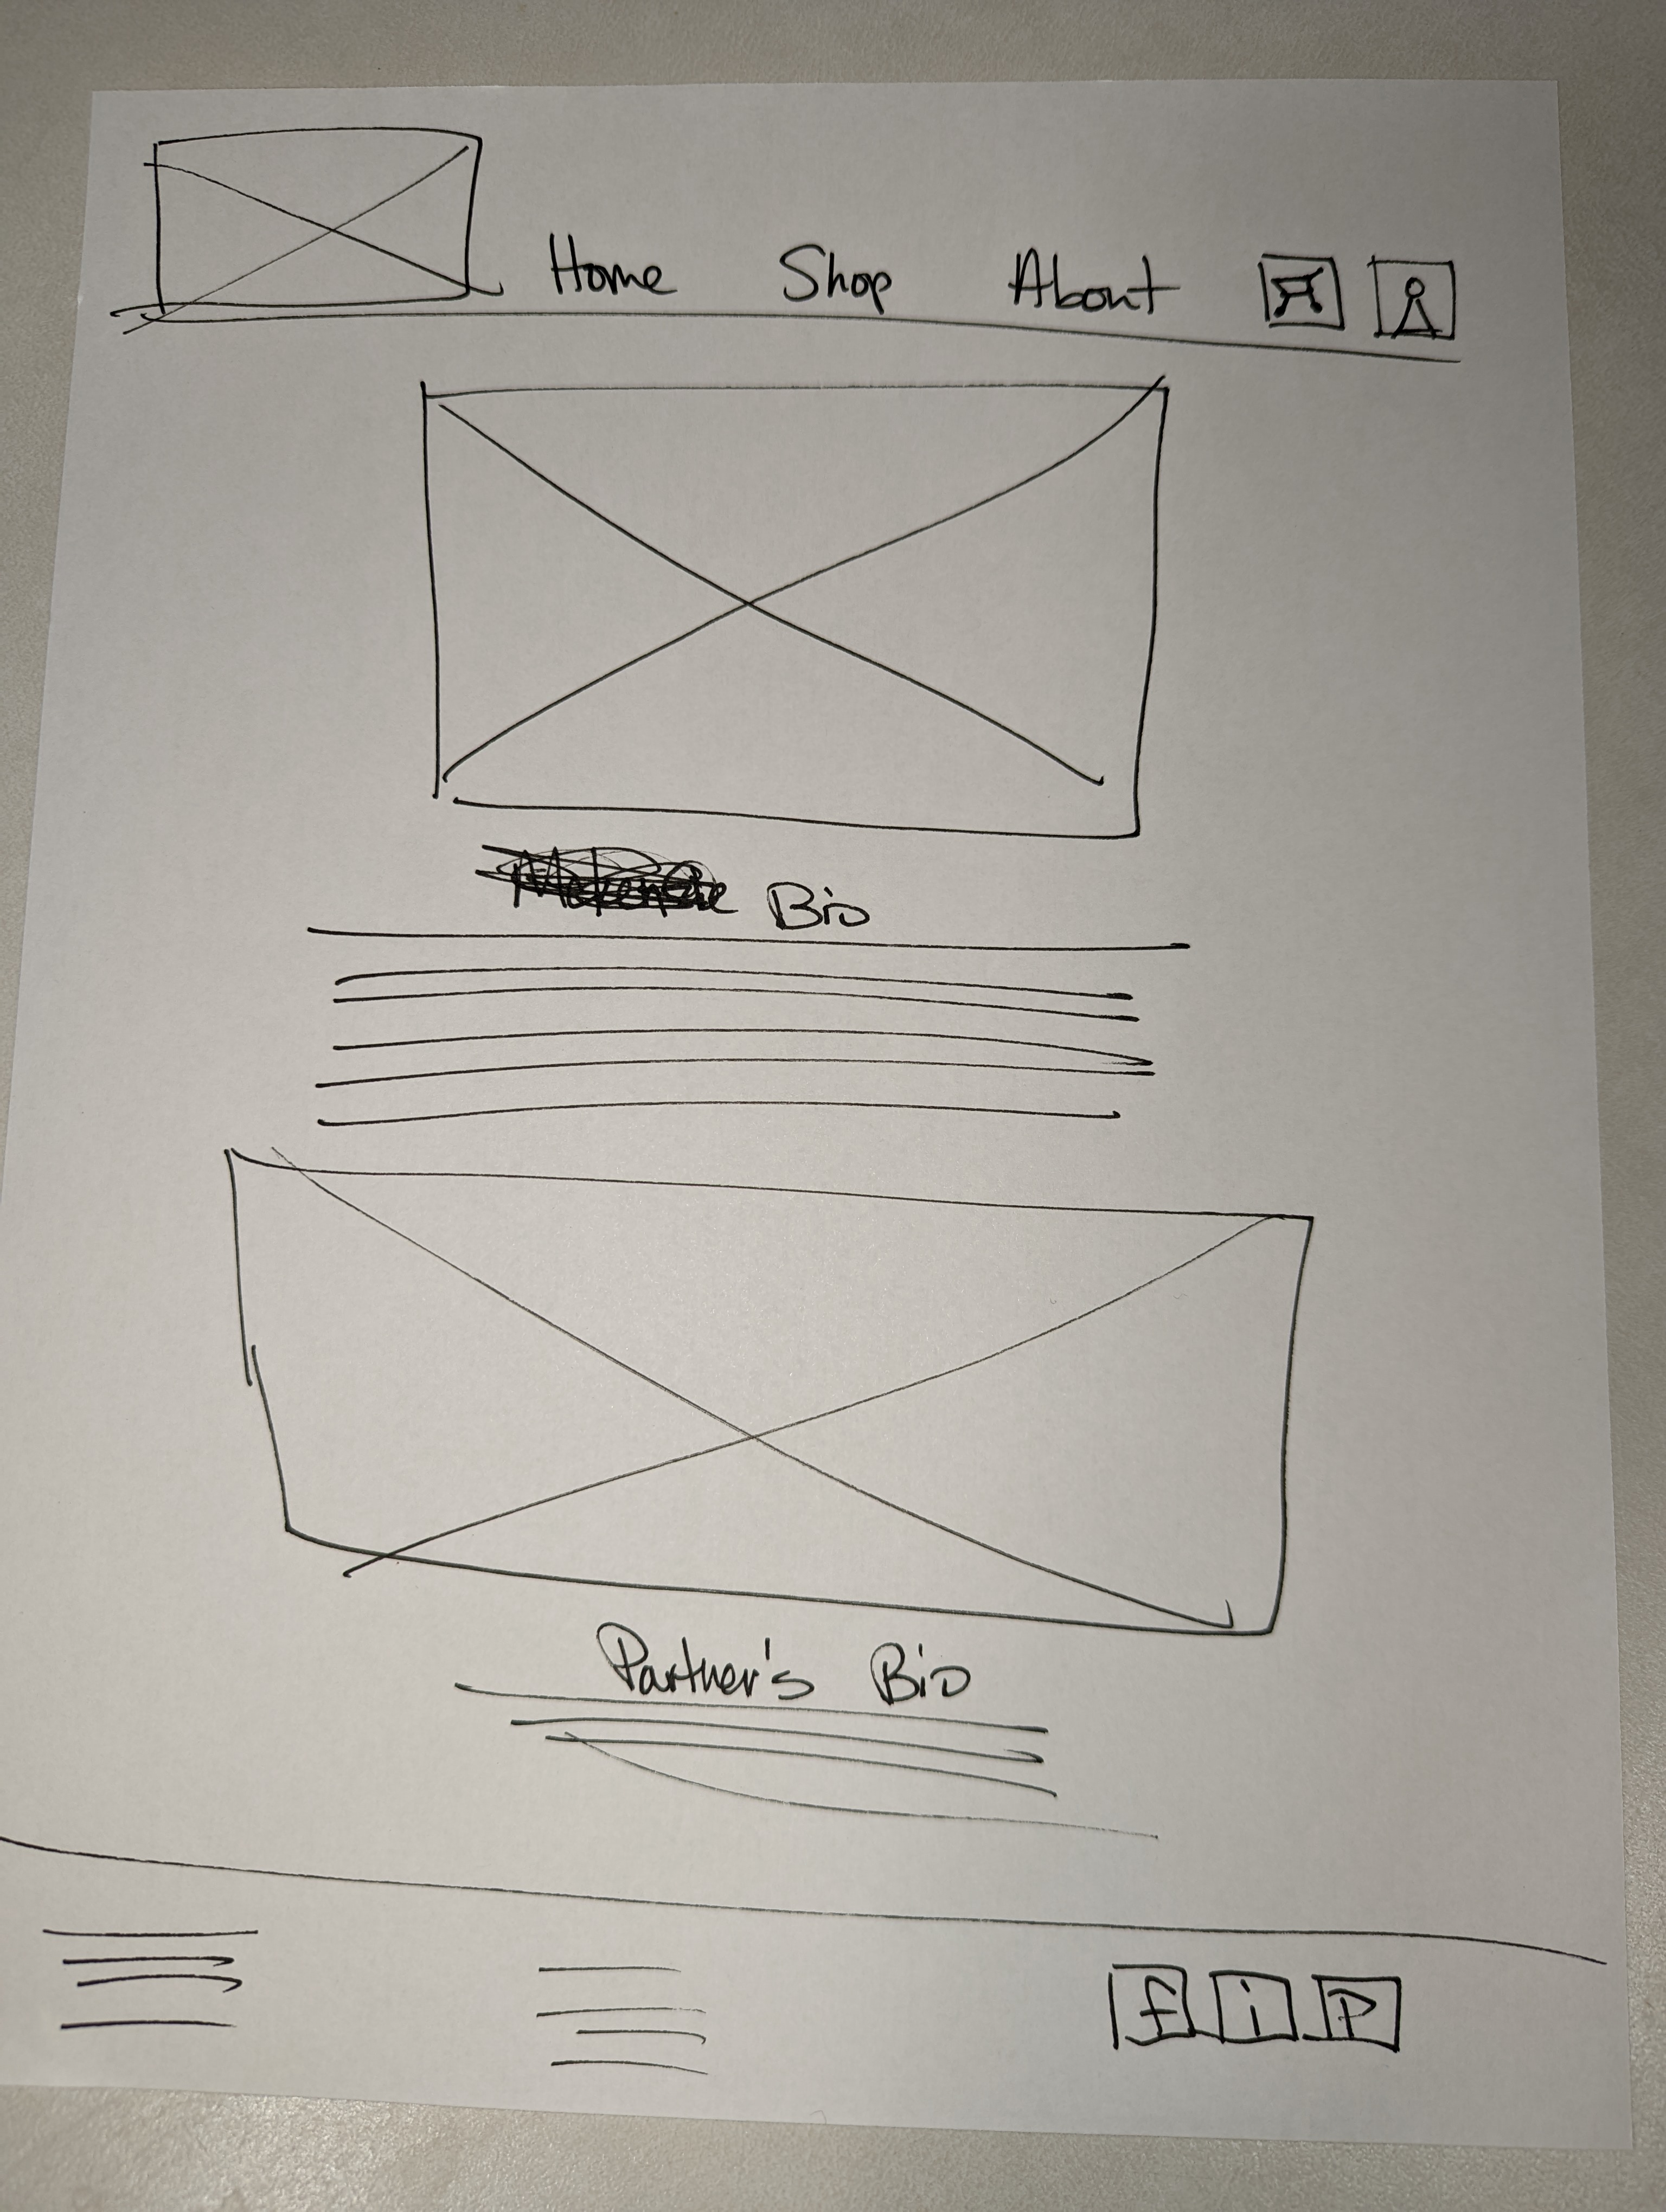 Home Shop About
Bio
Partner's Bio
f i P